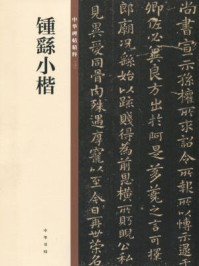 尚書宣示孫權所求詔令所報所以博示逮于
卿佐必冀良方出於阿是芻蕘之言可擇
郎廟況繇始以疏賤得為前恩橫所盱睨公私
見異愛同骨肉殊遇厚寵以至今日再世榮名
中華碑帖精粹
锺繇小楷
中華書局